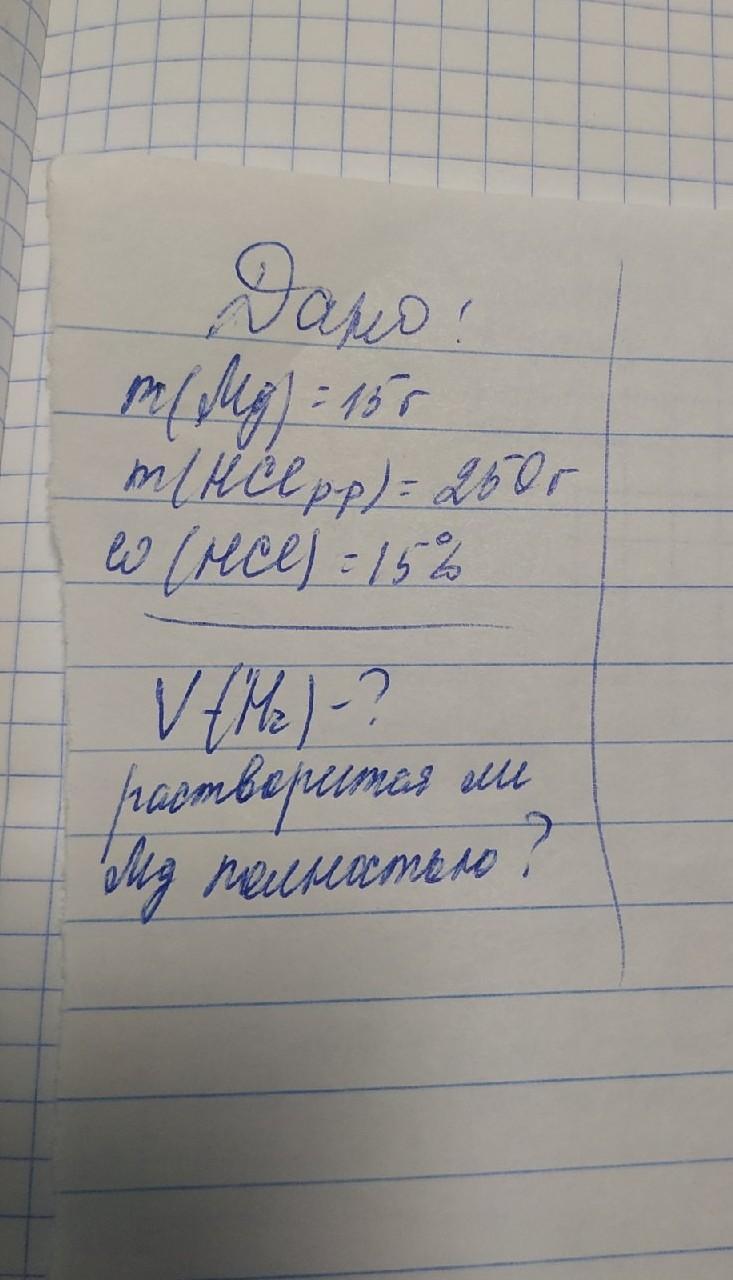 Дано:
m(Mg) = 15 г
m(HCl р-р) = 250 г
ω (HCl) = 15%
V(H₂) - ?
растворится ли
Mg полностью?